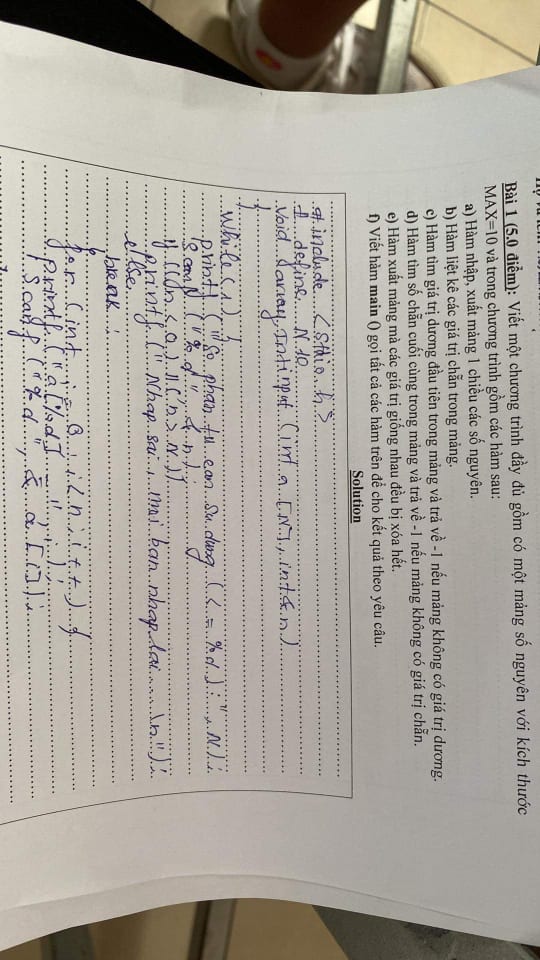 Bài 1 (5.0 điểm): Viết một chương trình đầy đủ gồm có một mảng số nguyên với kích thước
MAX=10 và trong chương trình gồm các hàm sau:
a) Hàm nhập, xuất mảng 1 chiều các số nguyên.
b) Hàm liệt kê các giá trị chẵn trong mảng.
c) Hàm tìm giá trị dương đầu tiên trong mảng và trả về -1 nếu mảng không có giá trị dương.
d) Hàm tìm số chẵn cuối cùng trong mảng và trả về -1 nếu mảng không có giá trị chẵn.
e) Hàm xuất mảng mà các giá trị giống nhau đều bị xóa hết.
f) Viết hàm main () gọi tất cả các hàm trên để cho kết quả theo yêu câu.
Solution
# include <Stdio.h>
# define N 10
void array Int input (int a [N], int & n)
{
while(1) {
printf ("So phan tu can su dung (<= %d) :", N);
Scanf ("%d", & n);
if ((n < 0) || (n > N))
printf (" Nhap sai, moi ban nhap lai ... \n");
else
break ;
}
for (int i = 0 ; i < n ; i ++) {
printf ("a[%d] = ", i);
Scanf ("%d", & a [i]);
}